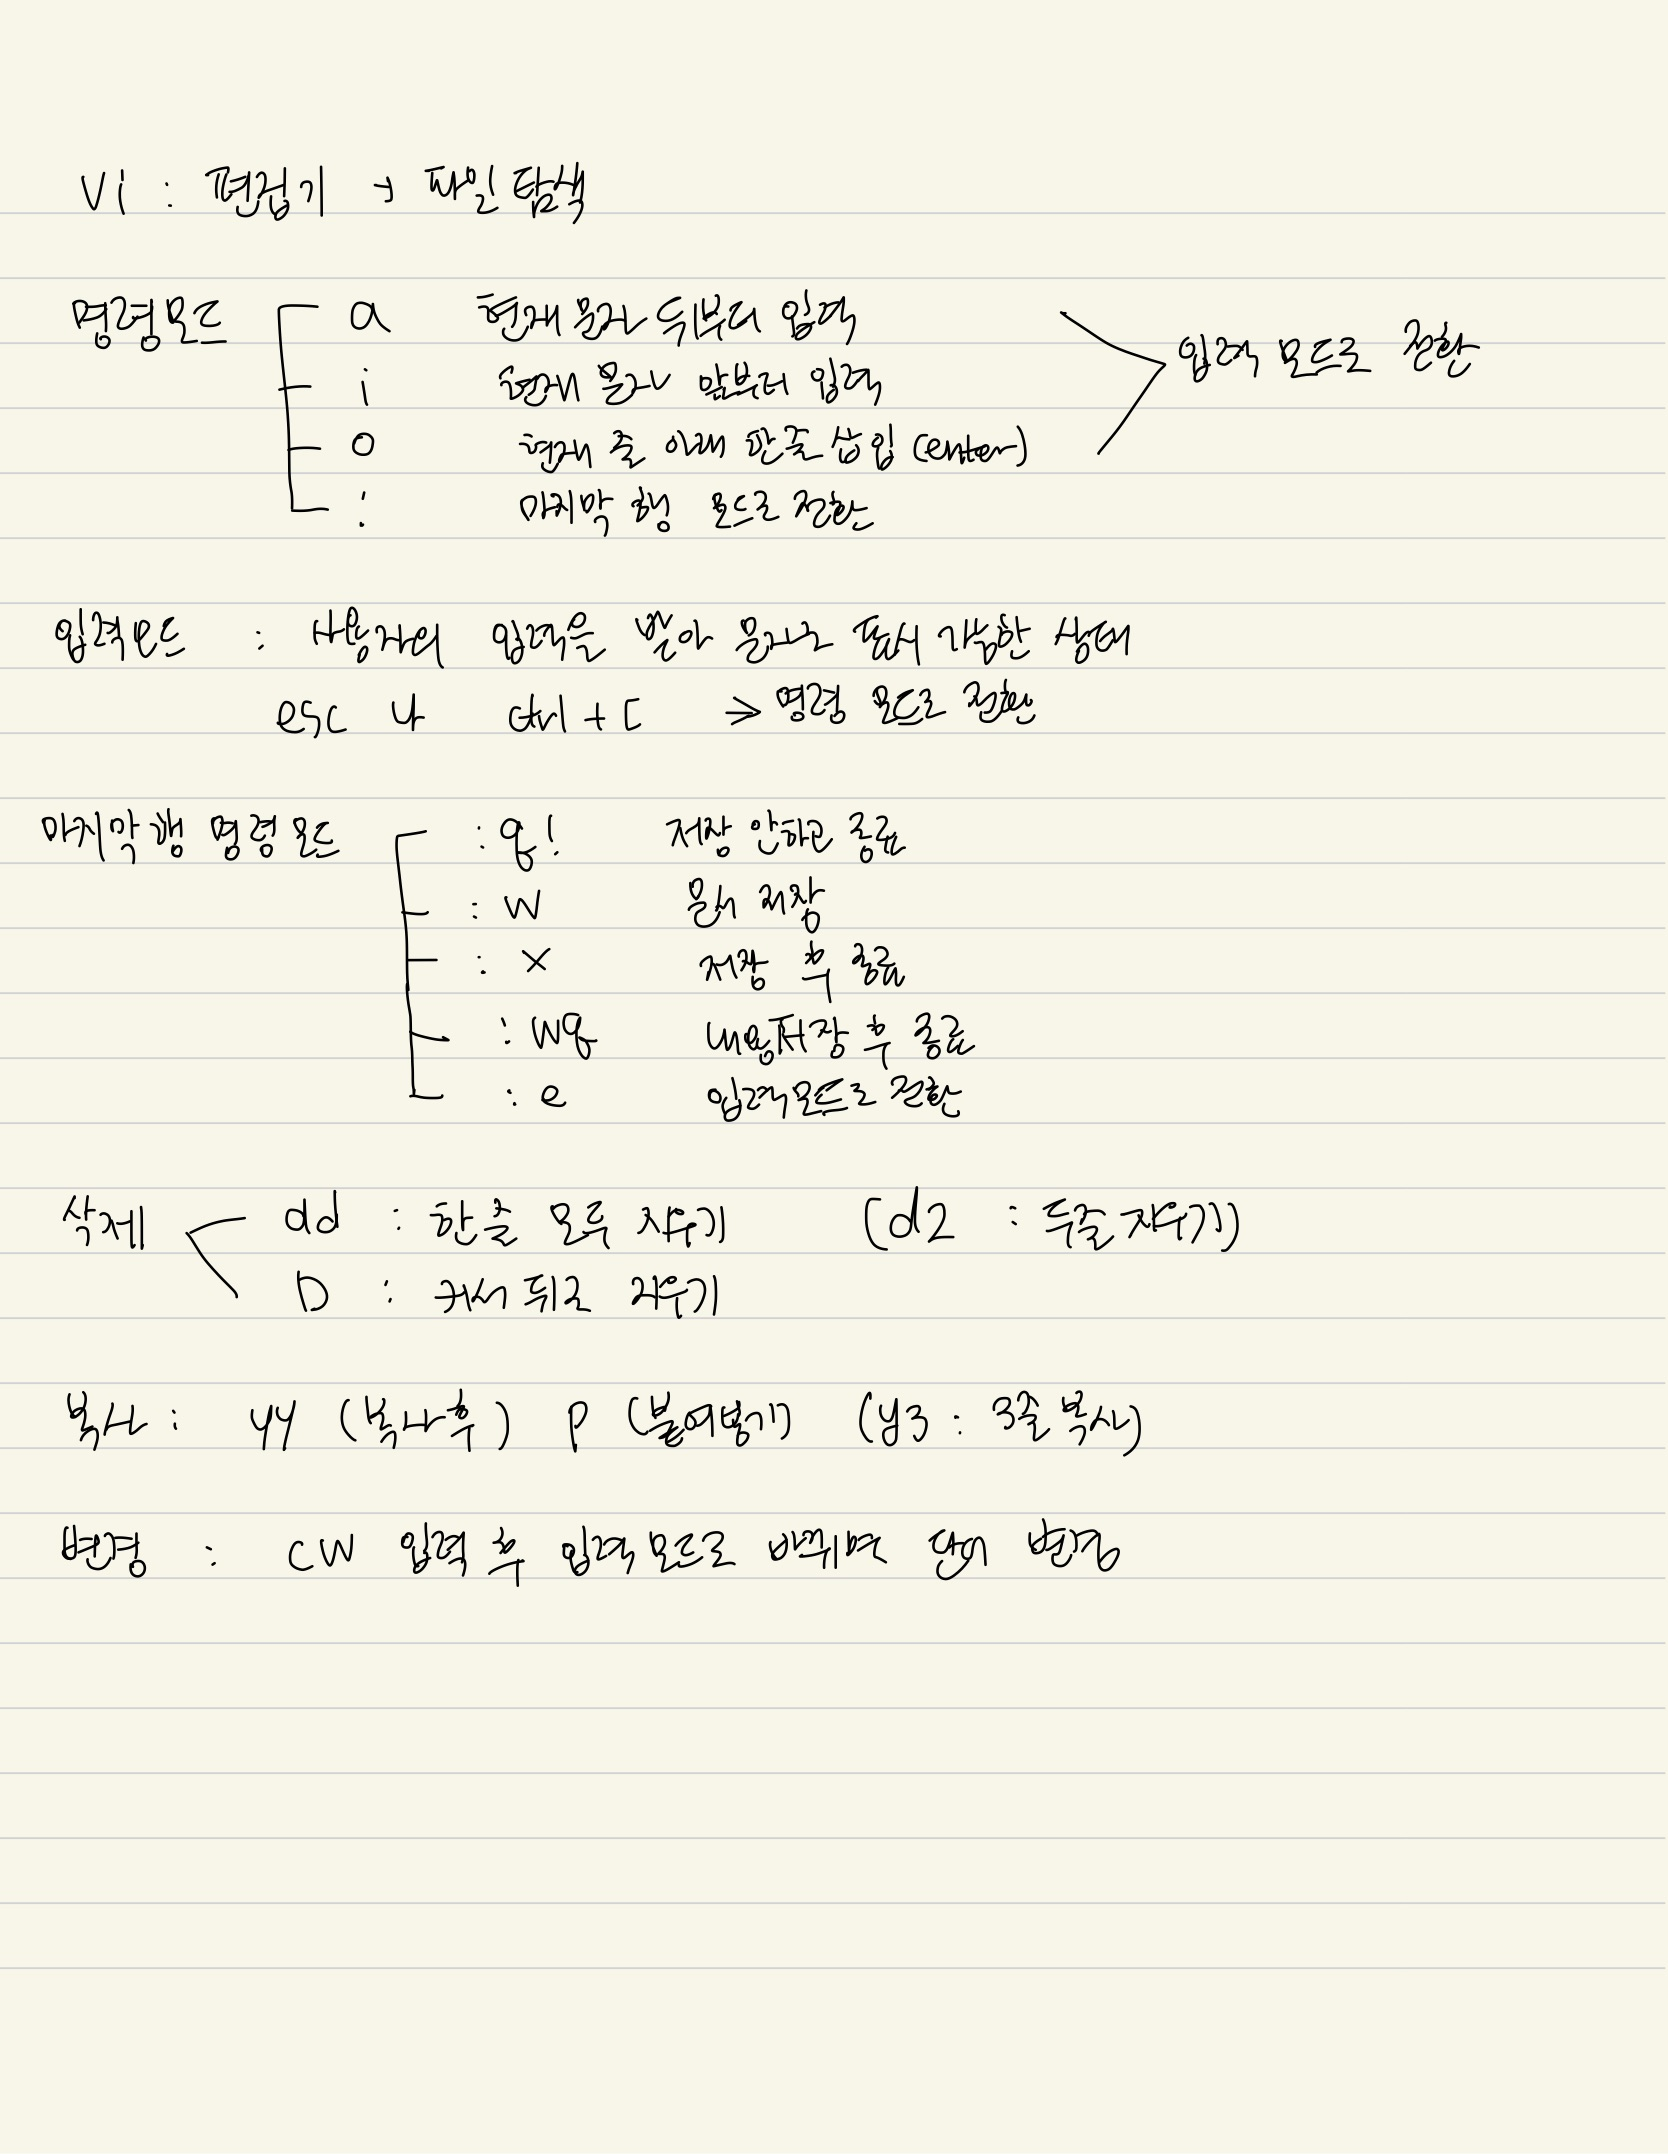 vi : 편집기 → 파일 탐색
명령모드 a 현재 문자 뒤부터 입력
i 현재 문자 앞부터 입력
입력 모드로 전환
o 현재 줄 아래 한줄 삽입 (enter)
: 마지막 행 모드로 전환
입력모드 : 사용자의 입력을 받아 문자로 표시 가능한 상태
esc 나 ctrl + [ ⇒ 명령 모드로 전환
마지막 행 명령 모드 :q! 저장 안하고 종료
:w 문서 저장
:x 저장 후 종료
:wq 내용저장 후 종료
:e 입력모드로 전환
삭제 dd : 한 줄 모두 지우기 (d2 : 두줄 지우기)
D : 커서 뒤로 지우기
복사 : yy (복사후) p (붙여넣기) (y3 : 3줄 복사)
변경 : cw 입력 후 입력 모드로 바뀌며 단어 변경